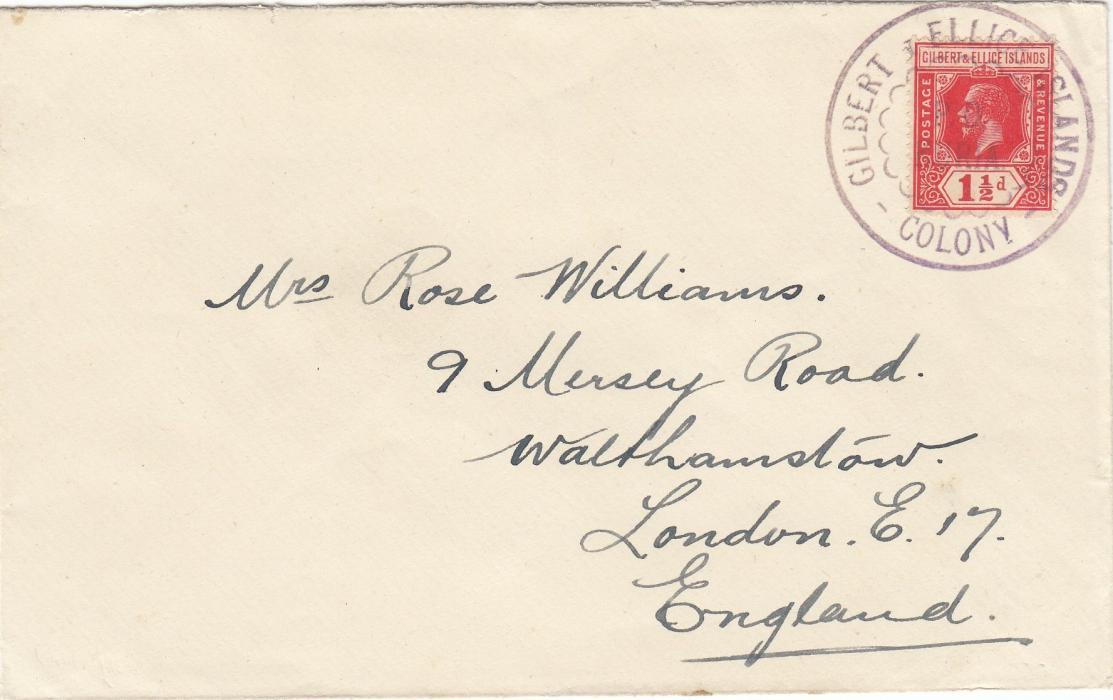 GILBERT & ELLICE ISLANDS
COLONY
GILBERT & ELLICE ISLANDS
POSTAGE
& REVENUE
1½d
Mrs Rose Williams.
9 Mersey Road.
Walthamstow.
London. E. 17.
England.